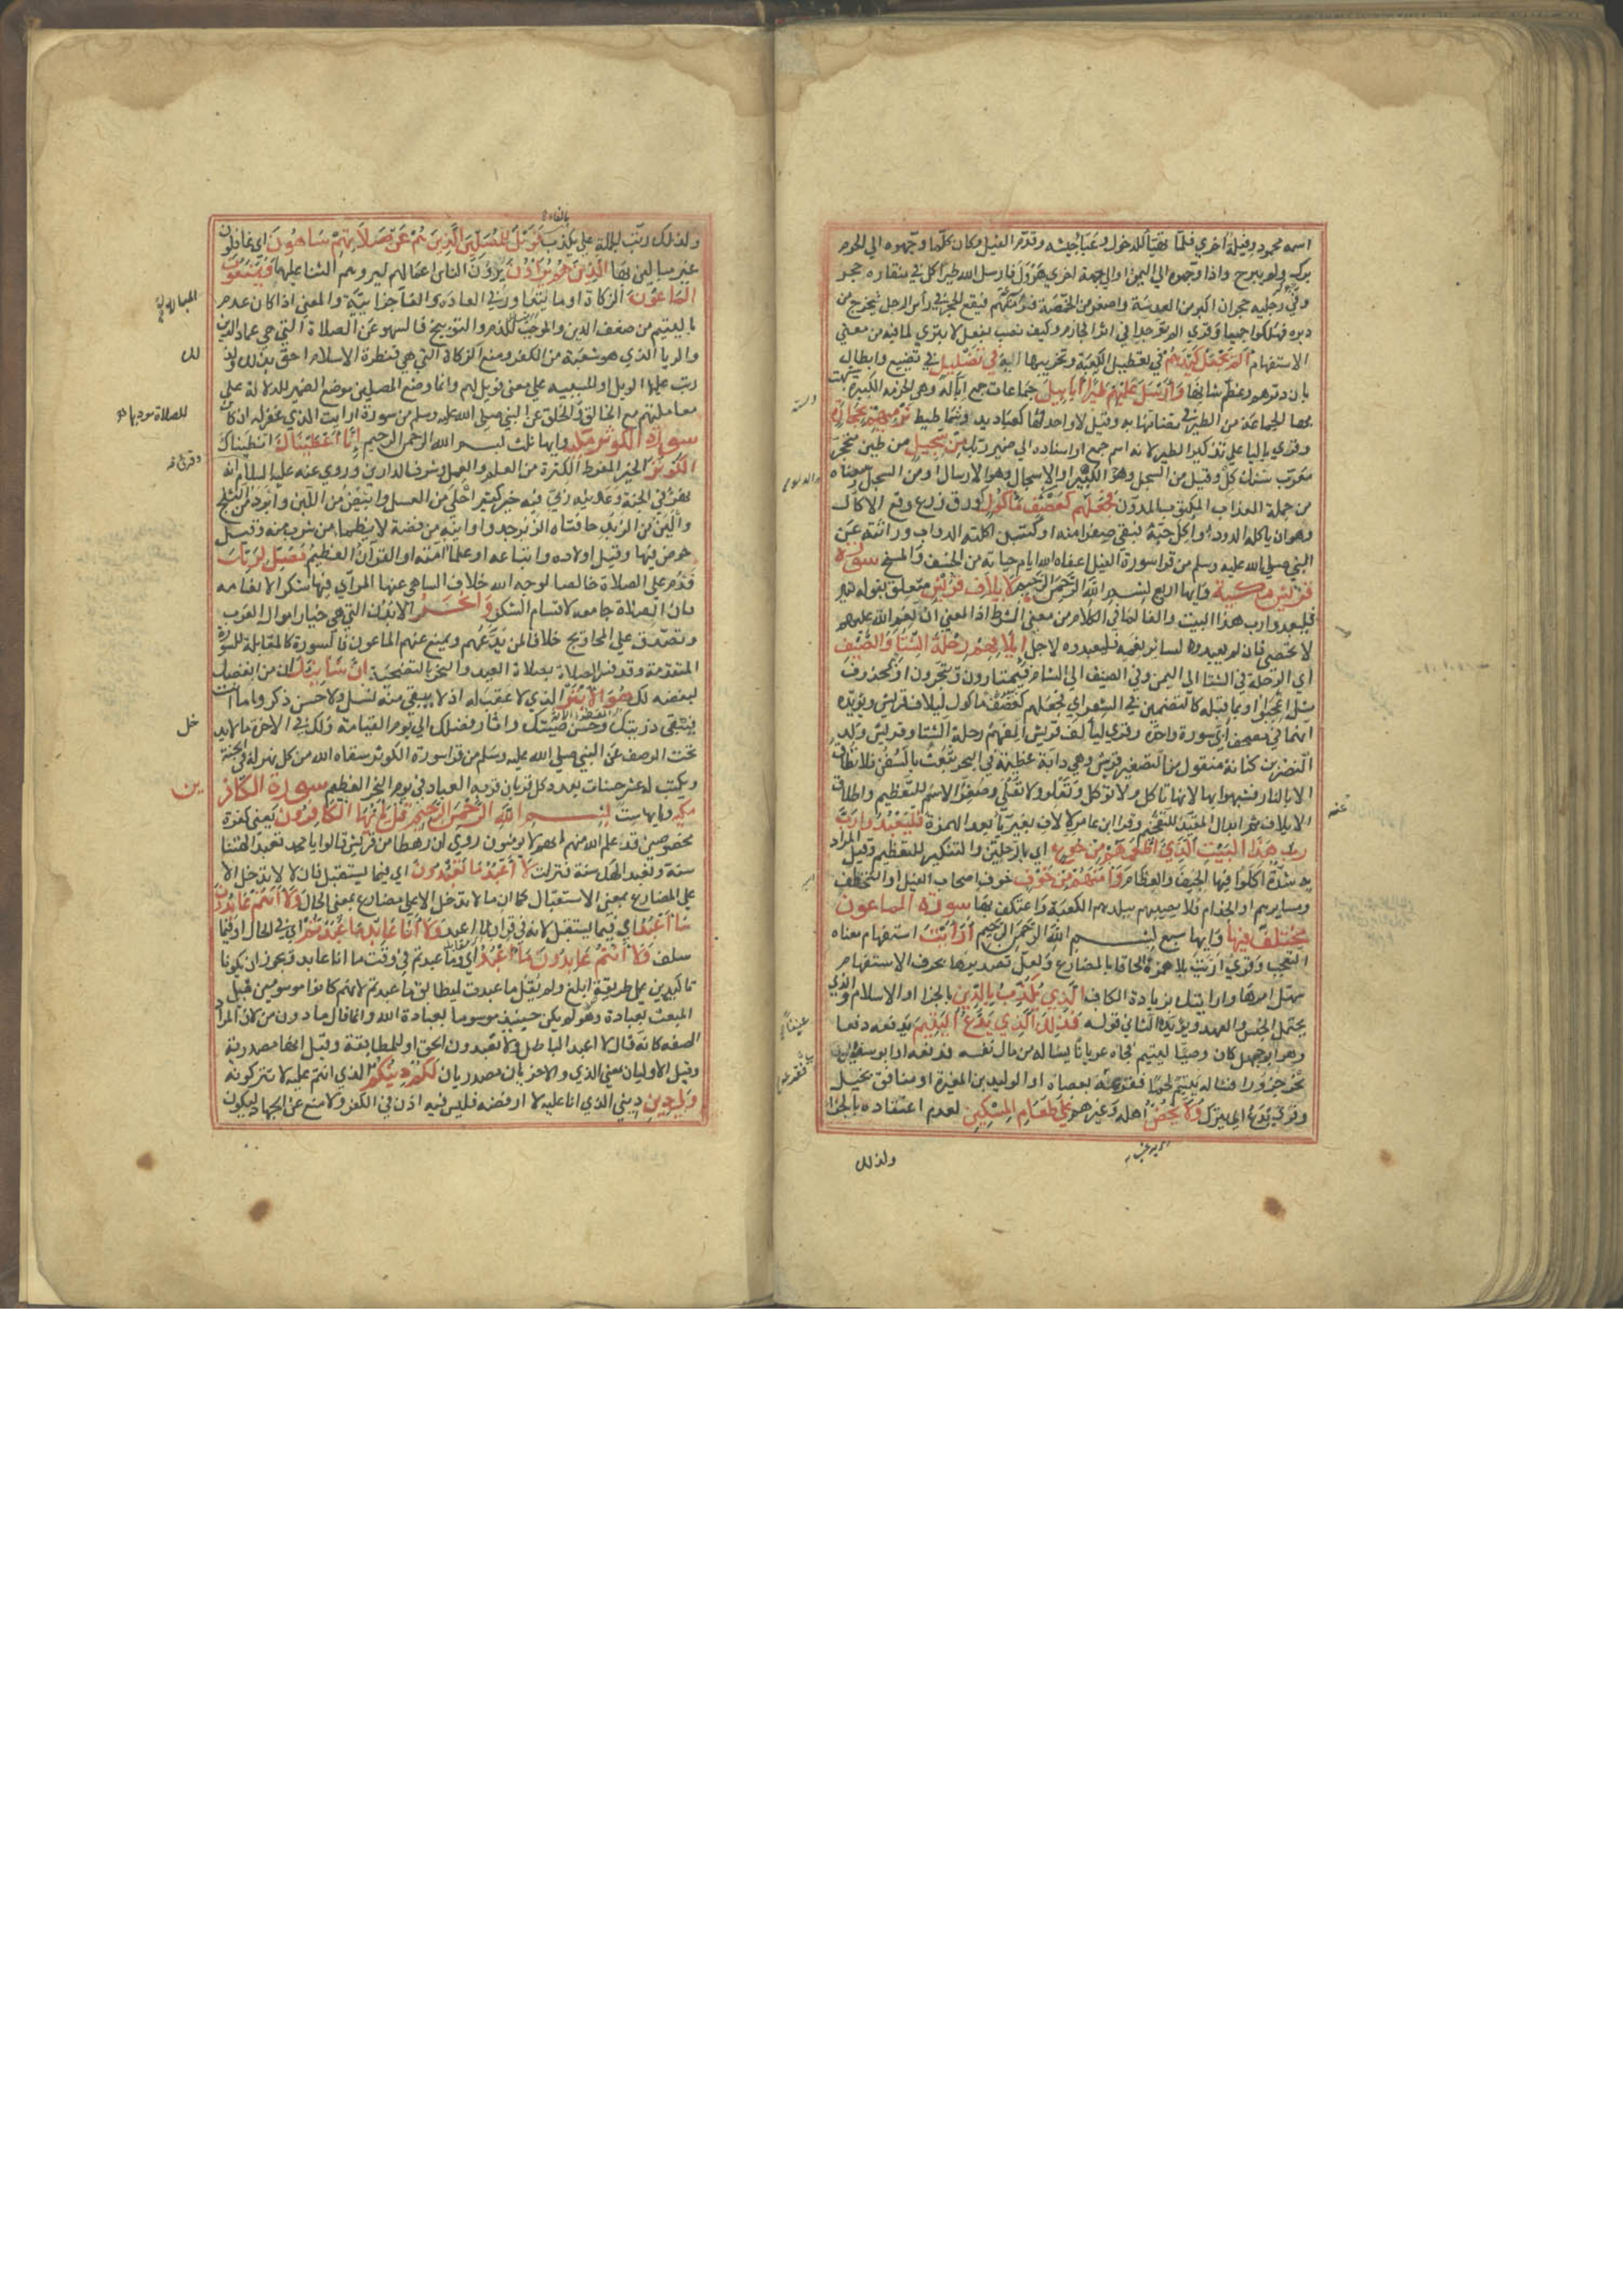 اسمه محمود وفيلة اخري فلما تهيا للدخول وعبا جيشه وقدم الفيل وكان كلما وجهوه الي الحرم
برك ولم يبرح واذا وجهوه الي اليمن او الي جهة اخري هرول فارسل الله طيرا كل في منقاره حجر
وفي رجليه حجران اكبر من العدسة واصغر من الحمصة فترميهم فيقع الحجر في راس الرجل فيخرج من
دبره فهلكوا جميعا وقري الم تر جدا في اظهار اثر الجازم وكيف نصب بفعل لا بتري لما فيه من معني
الاستفهام الم يجعل كيدهم في تعطيل الكعبة وتخريبها في تضليل في تضييع وابطال
بان دمرهم وعظم شانها وارسل عليهم طيرا ابابيل جماعات جمع ابالة وهي الحزمة الكبيرة شبهت
بها الجماعة من الطير في تضامها وقيل لا واحد لها كعباديد وشماطيط ترميهم بحجارة
وقري باليا علي تذكير الطير لانه اسم جمع او اسناده الي ضمير ربك من سجيل من طين متحجر
معرب سنك كل وقيل من السجل وهو الدلو الكبير او الاسجال وهو الارسال او من السجل ومعناه
من جملة العذاب المكتوب المدون فجعلهم كعصف ماكول كورق زرع وقع فيه الاكال
وهو ان ياكله الدود او اكل حبه فبقي صفرا منه او كتبن اكلته الدواب وراثته عن
النبي صلي الله عليه وسلم من قرا سورة الفيل اعفاه الله ايام حياته من الخسف والمسخ سورة
قريش مكية وايها اربع بسم الله الرحمن الرحيم لايلاف قريش متعلق بقوله
فليعبدوا رب هذا البيت والفا لما في الكلام من معني الشرط اذ المعني ان نعم الله عليهم
لا تحصي فان لم يعبدوه لسائر نعمه فليعبدوه لاجل ايلافهم رحلة الشتا والصيف
اي الرحلة في الشتا الي اليمن وفي الصيف الي الشام فيمتارون ويتجرون او بمحذوف
مثل اعجبوا او بما قبله كالتضمين في الشعر اي فجعلهم كعصف ماكول لايلاف قريش ويويده
انهما في مصحف ابي سورة واحدة وقري ليالف قريش الفهم رحلة الشتا وقريش ولد
النضر بن كنانة منقول من تصغير قرش وهي دابة عظيمة في البحر تعبث بالسفن فلا تطاق
الا بالنار فشبهوا بها لانها تاكل ولا توكل وتعلو ولا تعلي وصغر الاسم للتعظيم واطلاق
الايلاف ثم ابدال المقيد للتفخيم وقرا ابن عامر لالاف بغير يا بعد الهمزة فليعبدوا رب
هذا البيت الذي اطعمهم من جوع اي بالرحلتين والتنكير للتعظيم وقيل المراد
به شدة اكلوا فيها الجيف والعظام وامنهم من خوف خوف اصحاب الفيل او التخطف
ومسايرهم او الجذام فلا يصيبهم ببلدهم الكعبة واعتكف بها سورة الماعون
مختلف فيها وايها سبع بسم الله الرحمن الرحيم ارايت استفهام معناه
التعجب وقري اريت بلا همزة الحاقا بالمضارع ولعل تصديرها بحرف الاستفهام
سهل امرها وارايتك بزيادة الكاف الذي يكذب بالدين بالجزا او الاسلام والذي
يحتمل الجنس والعهد ويويد الثاني قوله فذلك الذي يدع اليتيم يدفعه دفعا
وهو ابو جهل كان وصيا ليتيم فجاه عريانا يساله من مال نفسه فدفعه او ابو سفيان
نحر جزورا فساله يتيم لحما فقرعه بعصاه او الوليد بن المغيرة او منافق بخيل
وقري يدع اي يترك ولا يحض اهله وغيرهم علي طعام المسكين لعدم اعتقاده بالجزا
ولذلك
بالفاء
ولذلك رتب الجملة علي يكذب فويل للمصلين الذين هم عن صلاتهم ساهون اي غافلون
غير مبالين بها الذين هم يراون يرون الناس اعمالهم ليروهم الثنا عليها ويمنعون
الماعون الزكاة او ما يتعاور في العادة والفا جزائية والمعني اذا كان عدم
باليتيم من ضعف الدين والموجب للذم والتوبيخ فالسهو عن الصلاة التي هي عماد الدين
والريا الذي هو شعبة من الكفر ومنع الزكاة التي هي قنطرة الاسلام احق بذلك ولذ
رتب عليها الويل او للسببية علي معني فويل لهم وانما وضع المصلين موضع الضمير للدلالة علي
معاملتهم مع الخالق والخلق عن النبي صلي الله عليه وسلم من سورة ارايت الذي غفر له ان كان
سورة الكوثر مكية وايها ثلث بسم الله الرحمن الرحيم انا اعطيناك انطيناك
الكوثر الخير المفرط الكثرة من العلم والعمل وشرف الدارين وروي عنه عليه السلام انه
نهر في الجنة وعدنيه ربي فيه خير كثير احلي من العسل وابيض من اللبن وابرد من الثلج
والين من الزبد حافتاه الزبرجد واوانيه من فضة لا يظما من شرب منه وقيل
حوض فيها وقيل اولاده واتباعه او علما امته او القرآن العظيم فصل لربك
فدم علي الصلاة خالصا لوجه الله خلاف الساهي عنها المرآي فيها شكرا لانعامه
فان الصلاة جامعة لاقسام الشكر وانحر البدن التي هي خيار اموال العرب
وتصدق علي المحاويج خلافا لمن يدعهم ويمنع عنهم الماعون فالسورة كالمقابلة للسورة
المتقدمة وقد فسر الصلاة بصلاة العيد والنحر بالتضحية ان شانئك ان من ابغضك
لبغضه لك هو الابتر الذي لا عقب له اذ لا يبقي منه نسل ولا حسن ذكر واما انت
فتبقي ذريتك وحسن صيتك واثار فضلك الي يوم القيامة ولك في الاخرة ما لا يد
تحت الوصف عن النبي صلي الله عليه وسلم من قرا سورة الكوثر سقاه الله من كل نهر له في الجنة
ويكتب له عشر حسنات بعدد كل قربان قربه العباد في يوم النحر العظيم سورة الكافر
مكية وايها ست بسم الله الرحمن الرحيم قل يا ايها الكافرون يعني كفرة
مخصوصين قد علم الله منهم انهم لا يومنون روي ان رهطا من قريش قالوا يا محمد تعبد الهتنا
سنة ونعبد الهك سنة فنزلت لا اعبد ما تعبدون اي فيما يستقبل فان لا لا تدخل الا
علي المضارع بمعني الاستقبال كما ان ما لا تدخل الا علي مضارع بمعني الحال ولا انتم عابدون
ما اعبد اي فيما يستقبل لانه في قران لا اعبد ولا انا عابد ما عبدتم اي في الحال او فيما
سلف ولا انتم عابدون ما اعبد اي وما عبدتم في وقت ما انا عابد ويجوز ان يكونا
تاكيدين علي طريقة ابلغ ولم يقل ما عبدت ليطابق ما عبدتم لانهم كانوا موسومين قبل
المبعث بعبادة وهو لم يكن حينيذ موسوما بعبادة الله وانما قال ما دون من لان المراد
الصفة كانه قال لا اعبد الباطل ولا تعبدون الحق او للمطابقة وقيل انها مصدرية
وقيل الاوليان بمعني الذي والاخريان مصدريان لكم دينكم الذي انتم عليه لا تتركونه
ولي دين ديني الذي انا عليه لا ارفضه فليس فيه اذن في الكفر ولا منع عن الجهاد ليكون